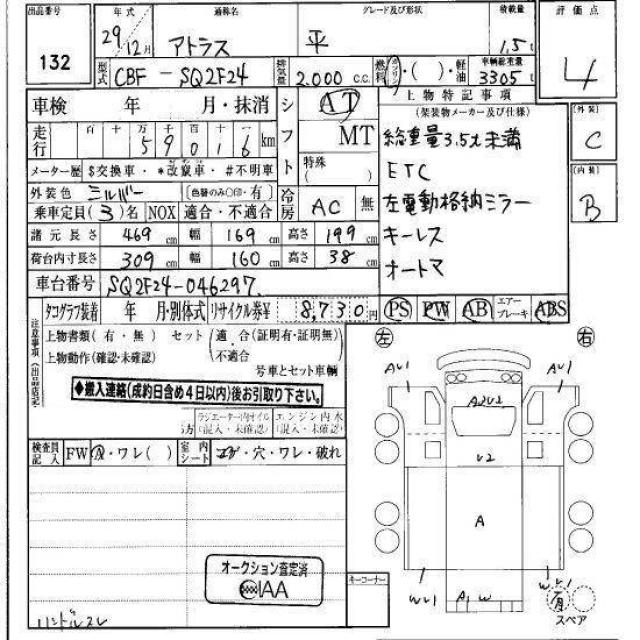 出品番号 年式 通称名 グレード及び形状 積載量 評価点
132 29年12月 アトラス 平 1.5t 4
型式 CBF-SQ2F24 排気量 2.000 c.c. 燃料 ガソリン・( )・軽油 車輌総重量 3305
車検 年 月・抹消 シフト AT 上物特記事項 外装
走行 百 十 万 千 百 十 一 59016km MT (架装物メーカー及び仕様) C
特殊( ) 総重量3.5t未満
メーター歴 $交換車・*改竄車・#不明車 ETC 内装
外装色 シルバー [色替のみ○印・有] 冷房 AC 無 左電動格納ミラー B
乗車定員(3)名 NOX 適合・不適合 キーレス
諸元長さ 469cm 幅 169cm 高さ 199cm オートマ
荷台内寸長さ 309cm 幅 160cm 高さ 38cm
車台番号 SQ2F24-046297
タコグラフ装着 年 月・別体式 リサイクル券¥ 8,730円 PS PW AB エアーブレーキ ABS
注意事項(出品店記
上物書類(有・無) セット(適合(証明有・証明無)
上物動作(確認・未確認) 不適合 左 右
号車とセット車輌
◆搬入連絡(成約日含め4日以内)後お引取り下さい。
ラジエーター内オイル エンジン内水
(混入・未確認) (混入・未確認)
検査員記入 FW A・ワレ( ) 室内シート コゲ・穴・ワレ・破れ
AU1 AU1
A2U2
U2
A
オークション査定済
IAA
キーコーナー
WU1 A1 W WU1 有
ハンドルスレ スペア